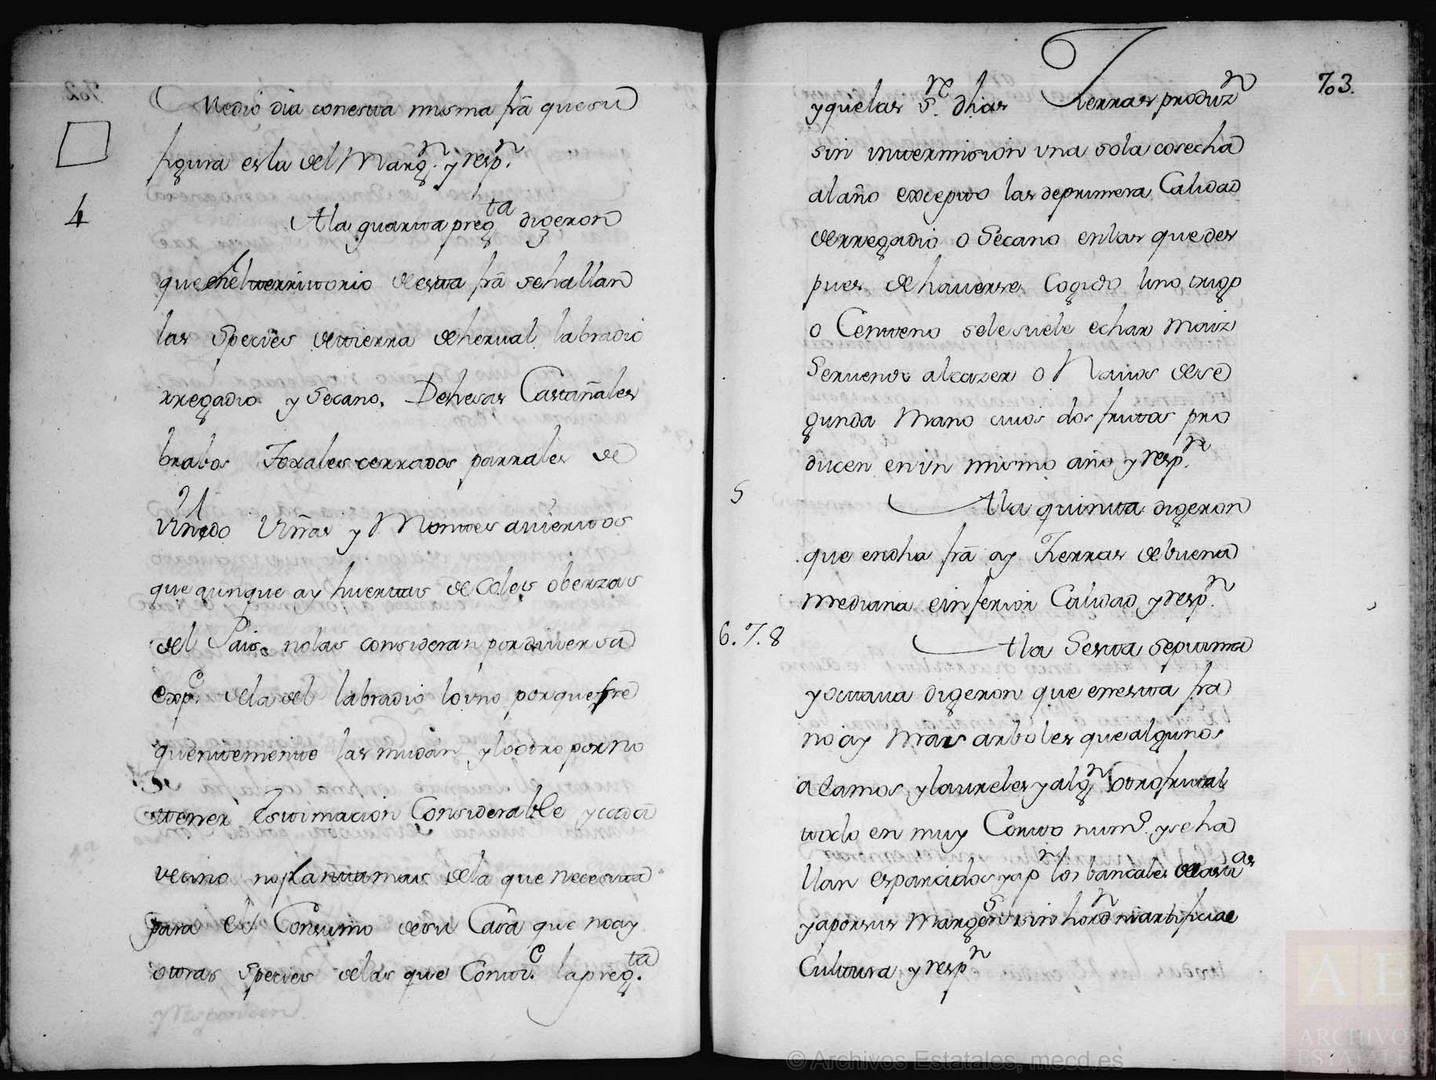 Medio dia con esta misma frã que su
figura es la del Marg.n y resp.n
4
A la quarta preg.ta digeron
que en el territorio de esta frã se hallan
las Speciẽs de tierra de herval labradio
rregadio y Secano, Dehesas Castañales
brabos Toxales cerrados parrales de
Viñedo Viñas y Montes avientos
que aunque ay huertas de Coles o berzas
del Pais, no las consideran por diversa
expe.e de la del labradio lo vno porque fre
quentemente las mudan y lo otro por no
tener Estimacion Considerable y cada
vecino no planta mas de la que necesita
para el Consumo de su Casa que no ay
otras Species de las que Contie.e la preg.ta
y Responden.
703.
y que las s.re dhas Tierras produz.n
sin intermision vna sola cosecha
al año excepto las de primera Calidad
de rregadio o Secano en las que des
pues de haverse Cogido lino trigo
o Centeno se le suele echar Maiz
Serueno alcazer o Navos de se
gunda Mano cuios dos frutos pro
ducen en vn mismo año y resp.n
5
A la quinta digeron
que en dha frã ay Tierras de buena
Mediana e inferior Calidad y resp.n
6.7.8
A la Sesta Septima
y octava digeron que en esta frã
no ay Mas arboles que algunos
alamos y laureles y alg.n otro frutal
todo en muy Corto num.o y se ha
llan esparcidos y a p.r los bancales
y a por sus Margen.s sin hord.n ni artificial
Cultura y resp.n
© Archivos Estatales, mecd.es
AE
ARCHIVOS
ESTATALES